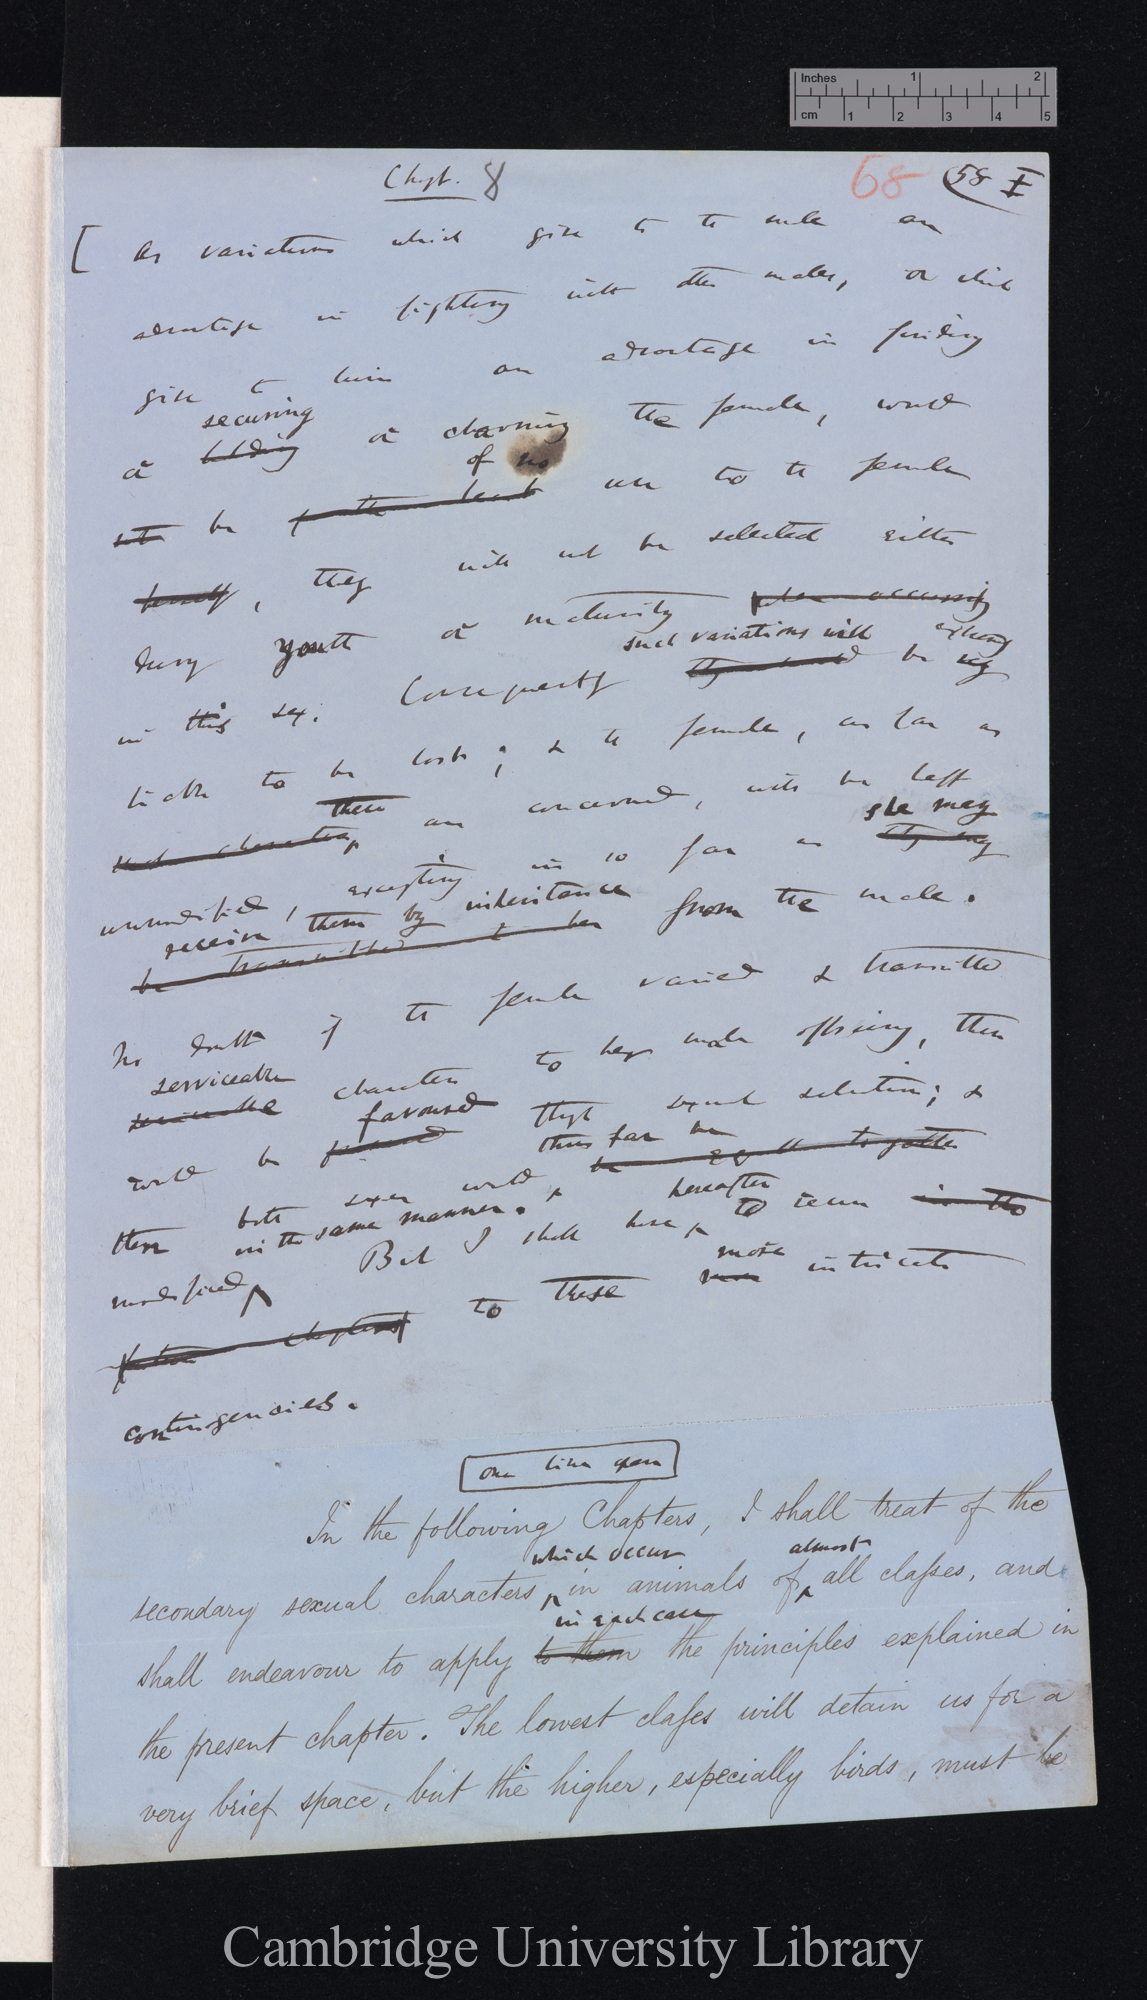 Inches 1 2
cm 1 2 3 4 5
Chapt. 8 68 58 I
[ As variations which give to the male an
advantage in fighting with other males, or which
give to him an advantage in finding
securing
or holding or charming the female, would
of no
be use to the female
herself, they will not be selected either
during youth or maturity when occurring
such variations will extremely
in this sex. Consequently they would be
liable to be lost; & the female, as far as
these
such characters are concerned, will be left
she may
unmodified, excepting in so far as they may
receive them by inheritance
be transmitted to her from the male.
No doubt if the female varied & transmitted
serviceable
serviceable characters to her male offspring, these
favoured
would be favoured through sexual selection; &
thus far be
then both sexes would be together
in the same manner. hereafter
modified. But I shall have to recur in the
more
future chapters to these more intricate
contingencies.
one line open
In the following Chapters, I shall treat of the
which occur almost
secondary sexual characters in animals of all classes, and
in each case
shall endeavour to apply to them the principles explained in
the present chapter. The lowest classes will detain us for a
very brief space, but the higher, especially birds, must be
Cambridge University Library